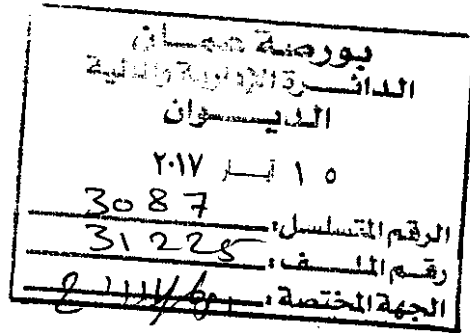 بورصة عمان
الدائرة الإدارية والمالية
الديوان
١٥ أيار ٢٠١٧
الرقم المتسلسل: 3087
رقم الملف: 31225
الجهة المختصة: